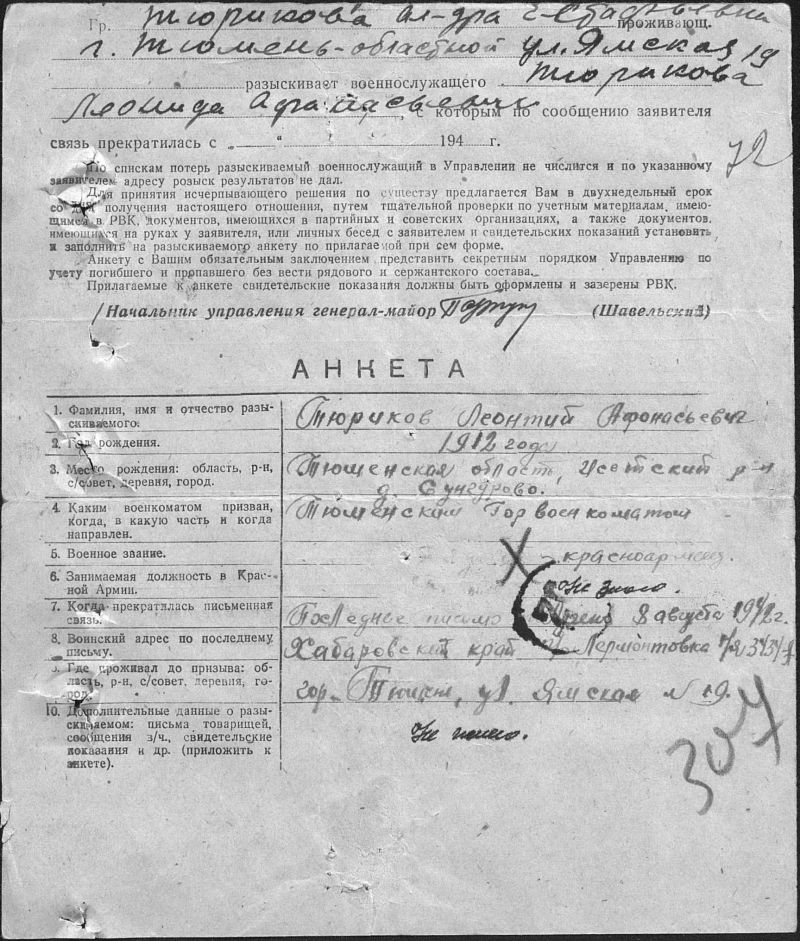 Гр. Тюрикова Ал-дра проживающ.
г. Тюмень-областной ул. Ямская 19
разыскивает военнослужащего Тюрикова
Леонида Афанасьевич, с которым по сообщению заявителя
связь прекратилась с „ “ 194 г.
72
По спискам потерь разыскиваемый военнослужащий в Управлении не числится и по указанному
заявителем адресу розыск результатов не дал.
Для принятия исчерпывающего решения по существу предлагается Вам в двухнедельный срок
со дня получения настоящего отношения, путем тщательной проверки по учетным материалам, имею-
щимся в РВК, документов, имеющихся в партийных и советских организациях, а также документов,
имеющихся на руках у заявителя, или личных бесед с заявителем и свидетельских показаний установить
и заполнить на разыскиваемого анкету по прилагаемой при сем форме.
Анкету с Вашим обязательным заключением представить секретным порядком Управлению по
учету погибшего и пропавшего без вести рядового и сержантского состава.
Прилагаемые к анкете свидетельские показания должны быть оформлены и заверены РВК.
/Начальник управления генерал-майор (Шавельский)
АНКЕТА
1. Фамилия, имя и отчество разы-
скиваемого.
Тюриков Леонтий Афонасьевич
2. Год рождения.
1912 года
3. Место рождения: область, р-н,
с/совет, деревня, город.
Тюменская область, Исетский р-н
д. Сунгурово.
4. Каким военкоматом призван,
когда, в какую часть и когда
направлен.
Тюменским Горвоенкоматом
5. Военное звание.
красноармеец.
6. Занимаемая должность в Крас-
ной Армии.
Не знаю.
7. Когда прекратилась письменная
связь.
Последнее письмо 8 августа 1942 г.
8. Воинский адрес по последнему
письму.
Хабаровский край Лермонтовка
9. Где проживал до призыва: об-
ласть, р-н, с/совет, деревня, го-
род.
гор. Тюмень, ул. Ямская N 19.
10. Дополнительные данные о разы-
скиваемом: письма товарищей,
сообщения з/ч., свидетельские
показания и др. (приложить к
анкете).
307